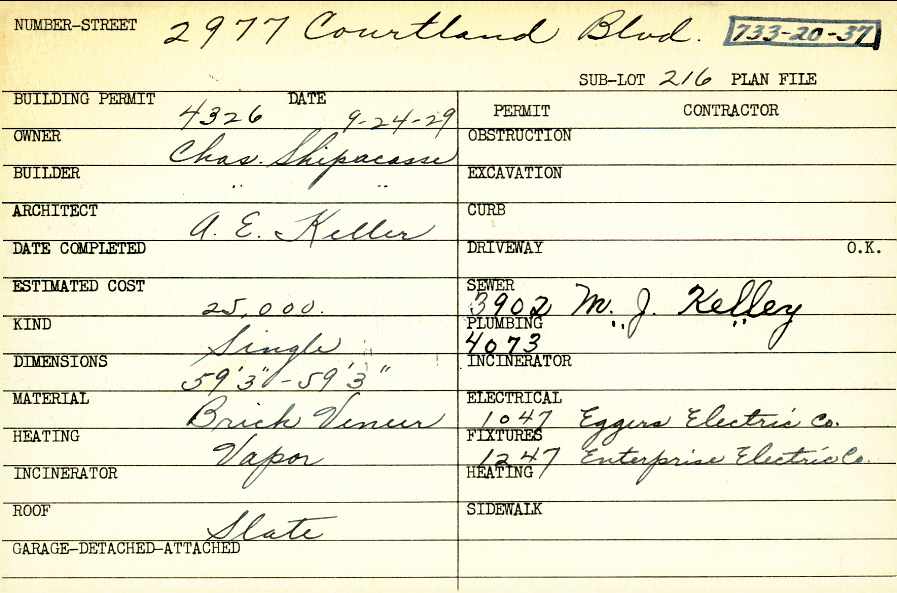 NUMBER-STREET 2977 Courtland Blvd. 733-20-37
SUB-LOT 216 PLAN FILE
BUILDING PERMIT 4326 DATE 9-24-29
OWNER Chas. Shipacasse
BUILDER " "
ARCHITECT A. E. Keller
DATE COMPLETED
ESTIMATED COST 25,000.
KIND Single
DIMENSIONS 59'3" - 59'3"
MATERIAL Brick Veneer
HEATING Vapor
INCINERATOR
ROOF Slate
GARAGE-DETACHED-ATTACHED
PERMIT CONTRACTOR
OBSTRUCTION
EXCAVATION
CURB
DRIVEWAY O.K.
SEWER 3902 M. J. Kelley
PLUMBING 4073 " "
INCINERATOR
ELECTRICAL 1047 Eggers Electric Co.
FIXTURES 1247 Enterprise Electric Co.
HEATING
SIDEWALK